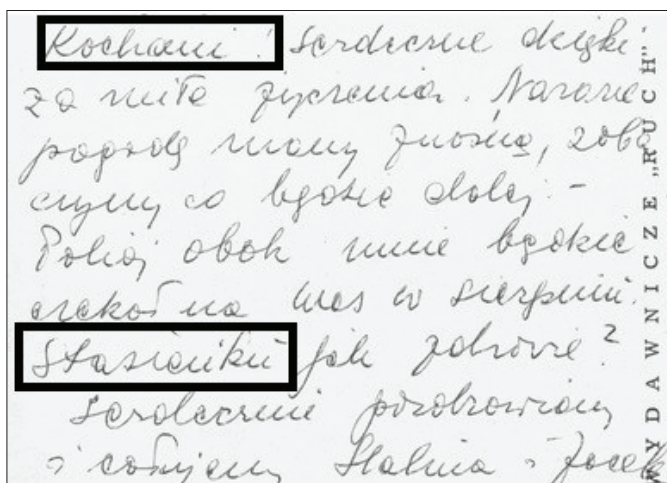 Kochani! Serdeczne dzięki
za miłe życzenia. Narazie
pogodę mamy znośną, zoba
czymy co będzie dalej –
Pokój obok mnie będzie
czekał na Was w sierpniu.
Stasieńku jak zdrowie?
Serdecznie pozdrawiamy
i całujemy Halina i Jacek
WYDAWNICZE „RUCH"